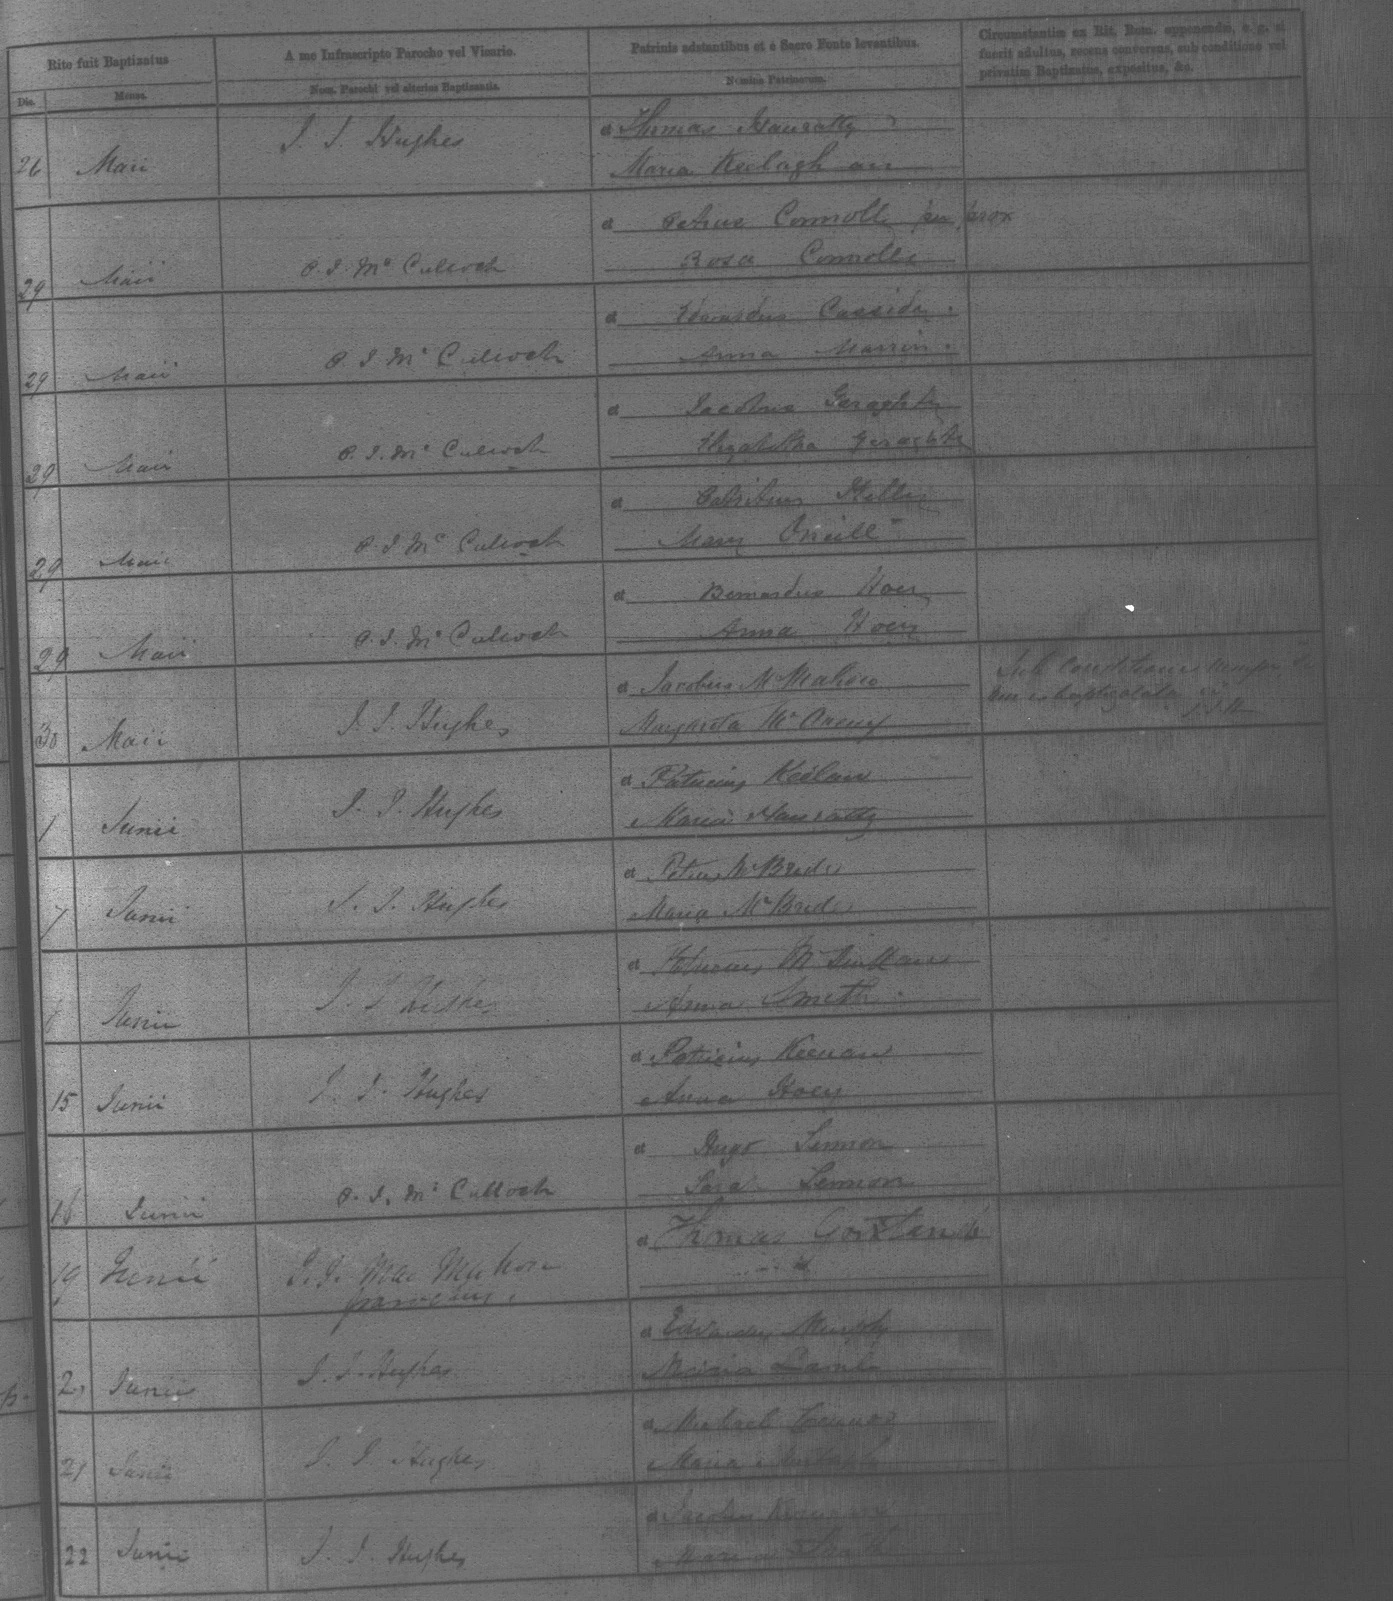 Rite fuit Baptizatus
A me Infrascripto Parocho vel Vicario.
Patrinis adstantibus et e Sacro Fonte levantibus.
Circumstantim ex Rit. Rom. apponendæ, v. g. si
fuerit adultus, recens conversus, sub conditione vel
privatim Baptizatus, expositus, &c.
Die.
Mense.
Nom. Parochi vel alterius Baptizantis.
Nomina Patrinorum.
26 Maii J. J. Hughes
a Thomas Hanratty
Maria Keelaghan
29 Maii P. J. Mc Culloch
a Petrus Connolly per prox
Rosa Connolly
29 Maii P. J. Mc Culloch
a Edwardus Cassidy
Anna Marrin
29 Maii P. J. Mc Culloch
a Jacobus Geraghty
Elizabetha Geraghty
29 Maii P. J. Mc Culloch
a Patritius
Mary Oneill
29 Maii P. J. Mc Culloch
a Bernardus Hoey
Anna Hoey
30 Maii J. J. Hughes
a Jacobus McMahon
Margarita
Sub Conditione
1 Junii J. J. Hughes
a Patricius Keelan
Maria Hanratty
7 Junii J. J. Hughes
a Petrus McBride
Maria McBride
Junii J. J. Hughes
a Patricius
Anna Smith
15 Junii J. J. Hughes
a Patricius Keenan
Anna Hoey
16 Junii P. J. Mc Culloch
a Hugo Lennon
Sara Lennon
19 Junii J. J. Mac Mahon
parochus
a Thomas
2 Junii J. J. Hughes
a Edwardus Murphy
Maria Lamb
21 Junii J. J. Hughes
a Michael
Maria
22 Junii J. J. Hughes
a Jacobus
Maria